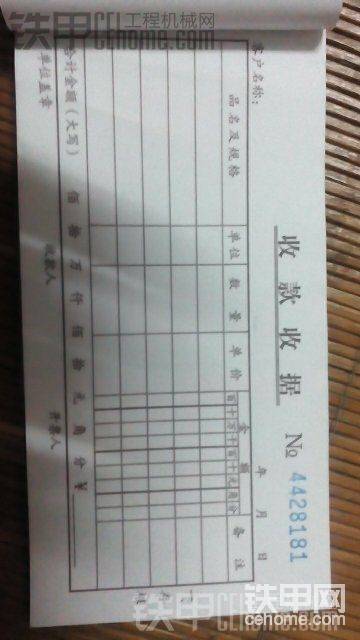 铁甲 工程机械网
cehome.com
收款收据 № 4428181
客户名称： 年 月 日
品名及规格 单位 数量 单价 金额 备注
百十万千百十元角分
合计金额（大写） 佰 拾 万 仟 佰 拾 元 角 分 ¥
单位盖章 收款人 开票人
铁甲
cehome.com
铁甲网
cehome.com